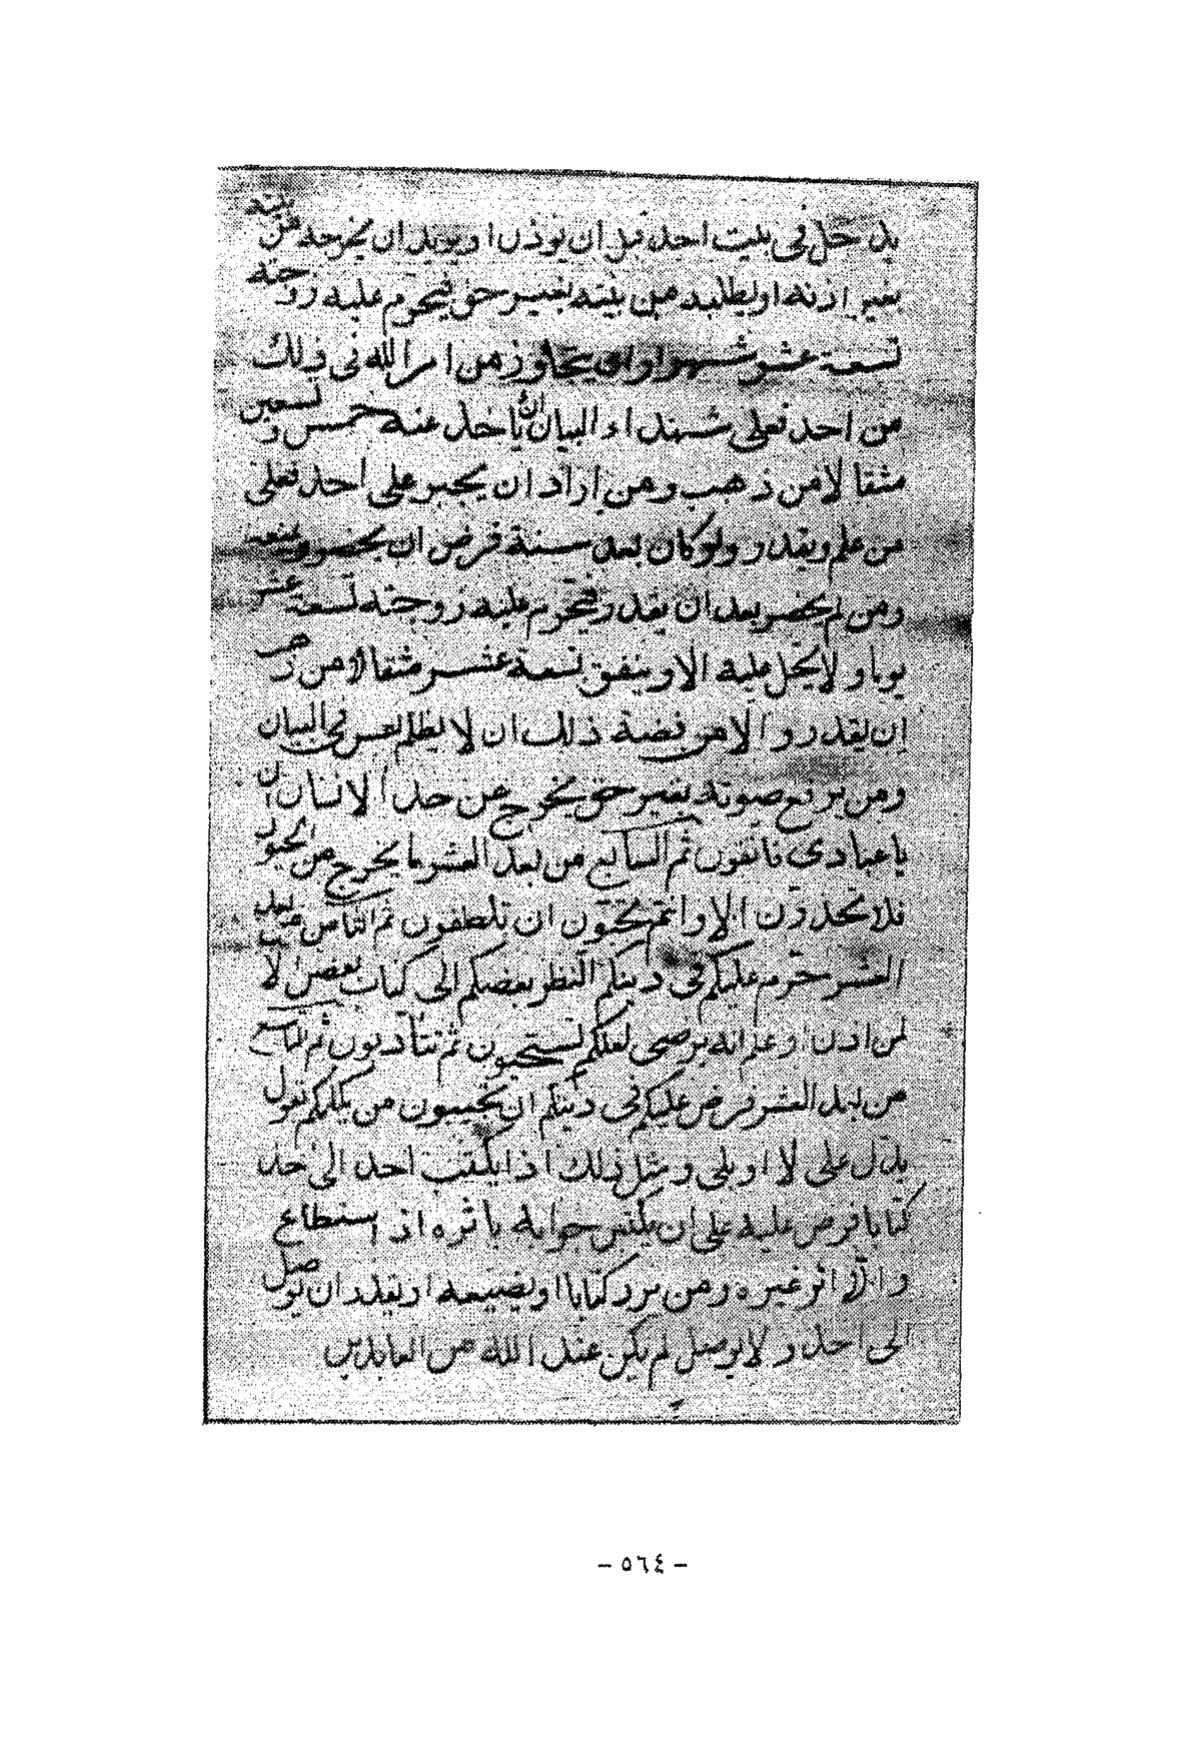 يدخل في بيت احد قبل ان يوذن او يريد ان يخرجه من بيته
بغير اذنه او يطلبه من بيته بغير حق فيحرم عليه زوجته
تسعة عشر شهرا وان يتجاوز من امر الله في ذلك
من احد فعلى شهداء البيان ان ياخذ عنه خمس و تسعين
مثقالا من ذهب ومن اراد ان يجبر على احد فعلى
من علم ويقدر ولو كان بعد سنة فرض ان يحضر و يمنعه
ومن لم يحضر بعد ان يقدر فيحرم عليه زوجته تسعة عشر
يوما و لا يحل عليه الا و ينفق تسعة عشر مثقالا من ذهب
ان يقدر و الا من فضة ذلك ان لا يظلم نفس في البيان
ومن يرفع صوته بغير حق يخرج عن حد الانسان ان
يا عبادي فاتقون ثم السابع من بعد العشر ما يخرج من الحيوان
فلا تحذرن الا وانتم تحبون ان تلطفون ثم الثامن من بعد
العشر حرم عليكم في دينكم النظر بعضكم الى كتاب بعض الا
لمن اذن او علم انه يرضى لعلكم تستحيون ثم تتأدبون ثم التاسع
من بعد العشر فرض عليكم في دينكم ان تجيبون من يكلمكم بقول
يدل على لا او بلى و مثل ذلك اذا يكتب احد الى احد
كتابا فرض عليه على ان يكتب جوابه باثره اذ استطاع
و الا اثر غيره ومن يرد كتابا او يضيعه او يقدر ان يوصل
الى احد و لا يوصل لم يكن عند الله من العابدين
- ٥٦٤ -